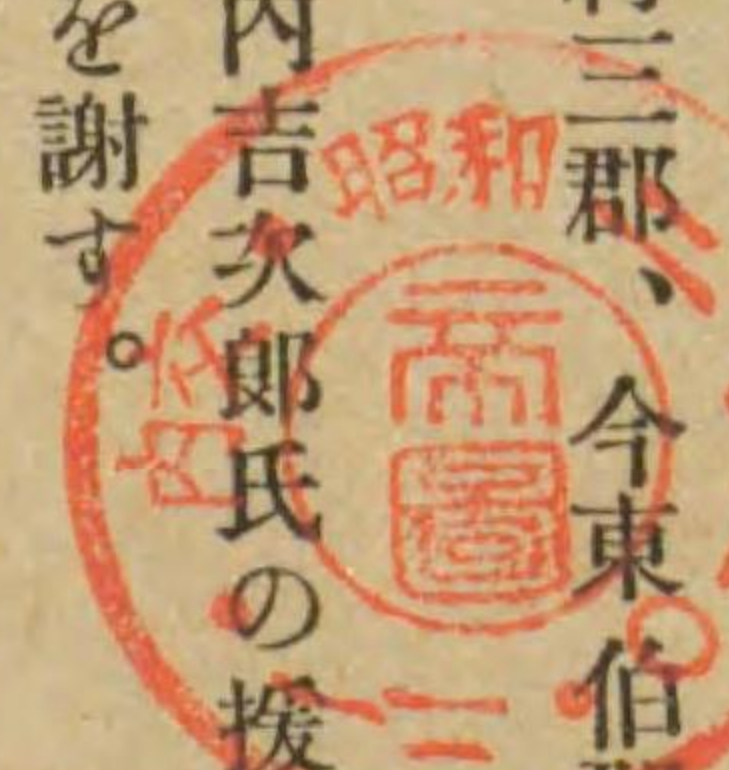 三郡、今東伯
内吉次郎氏の援
を謝す。
昭和
帝図
内交